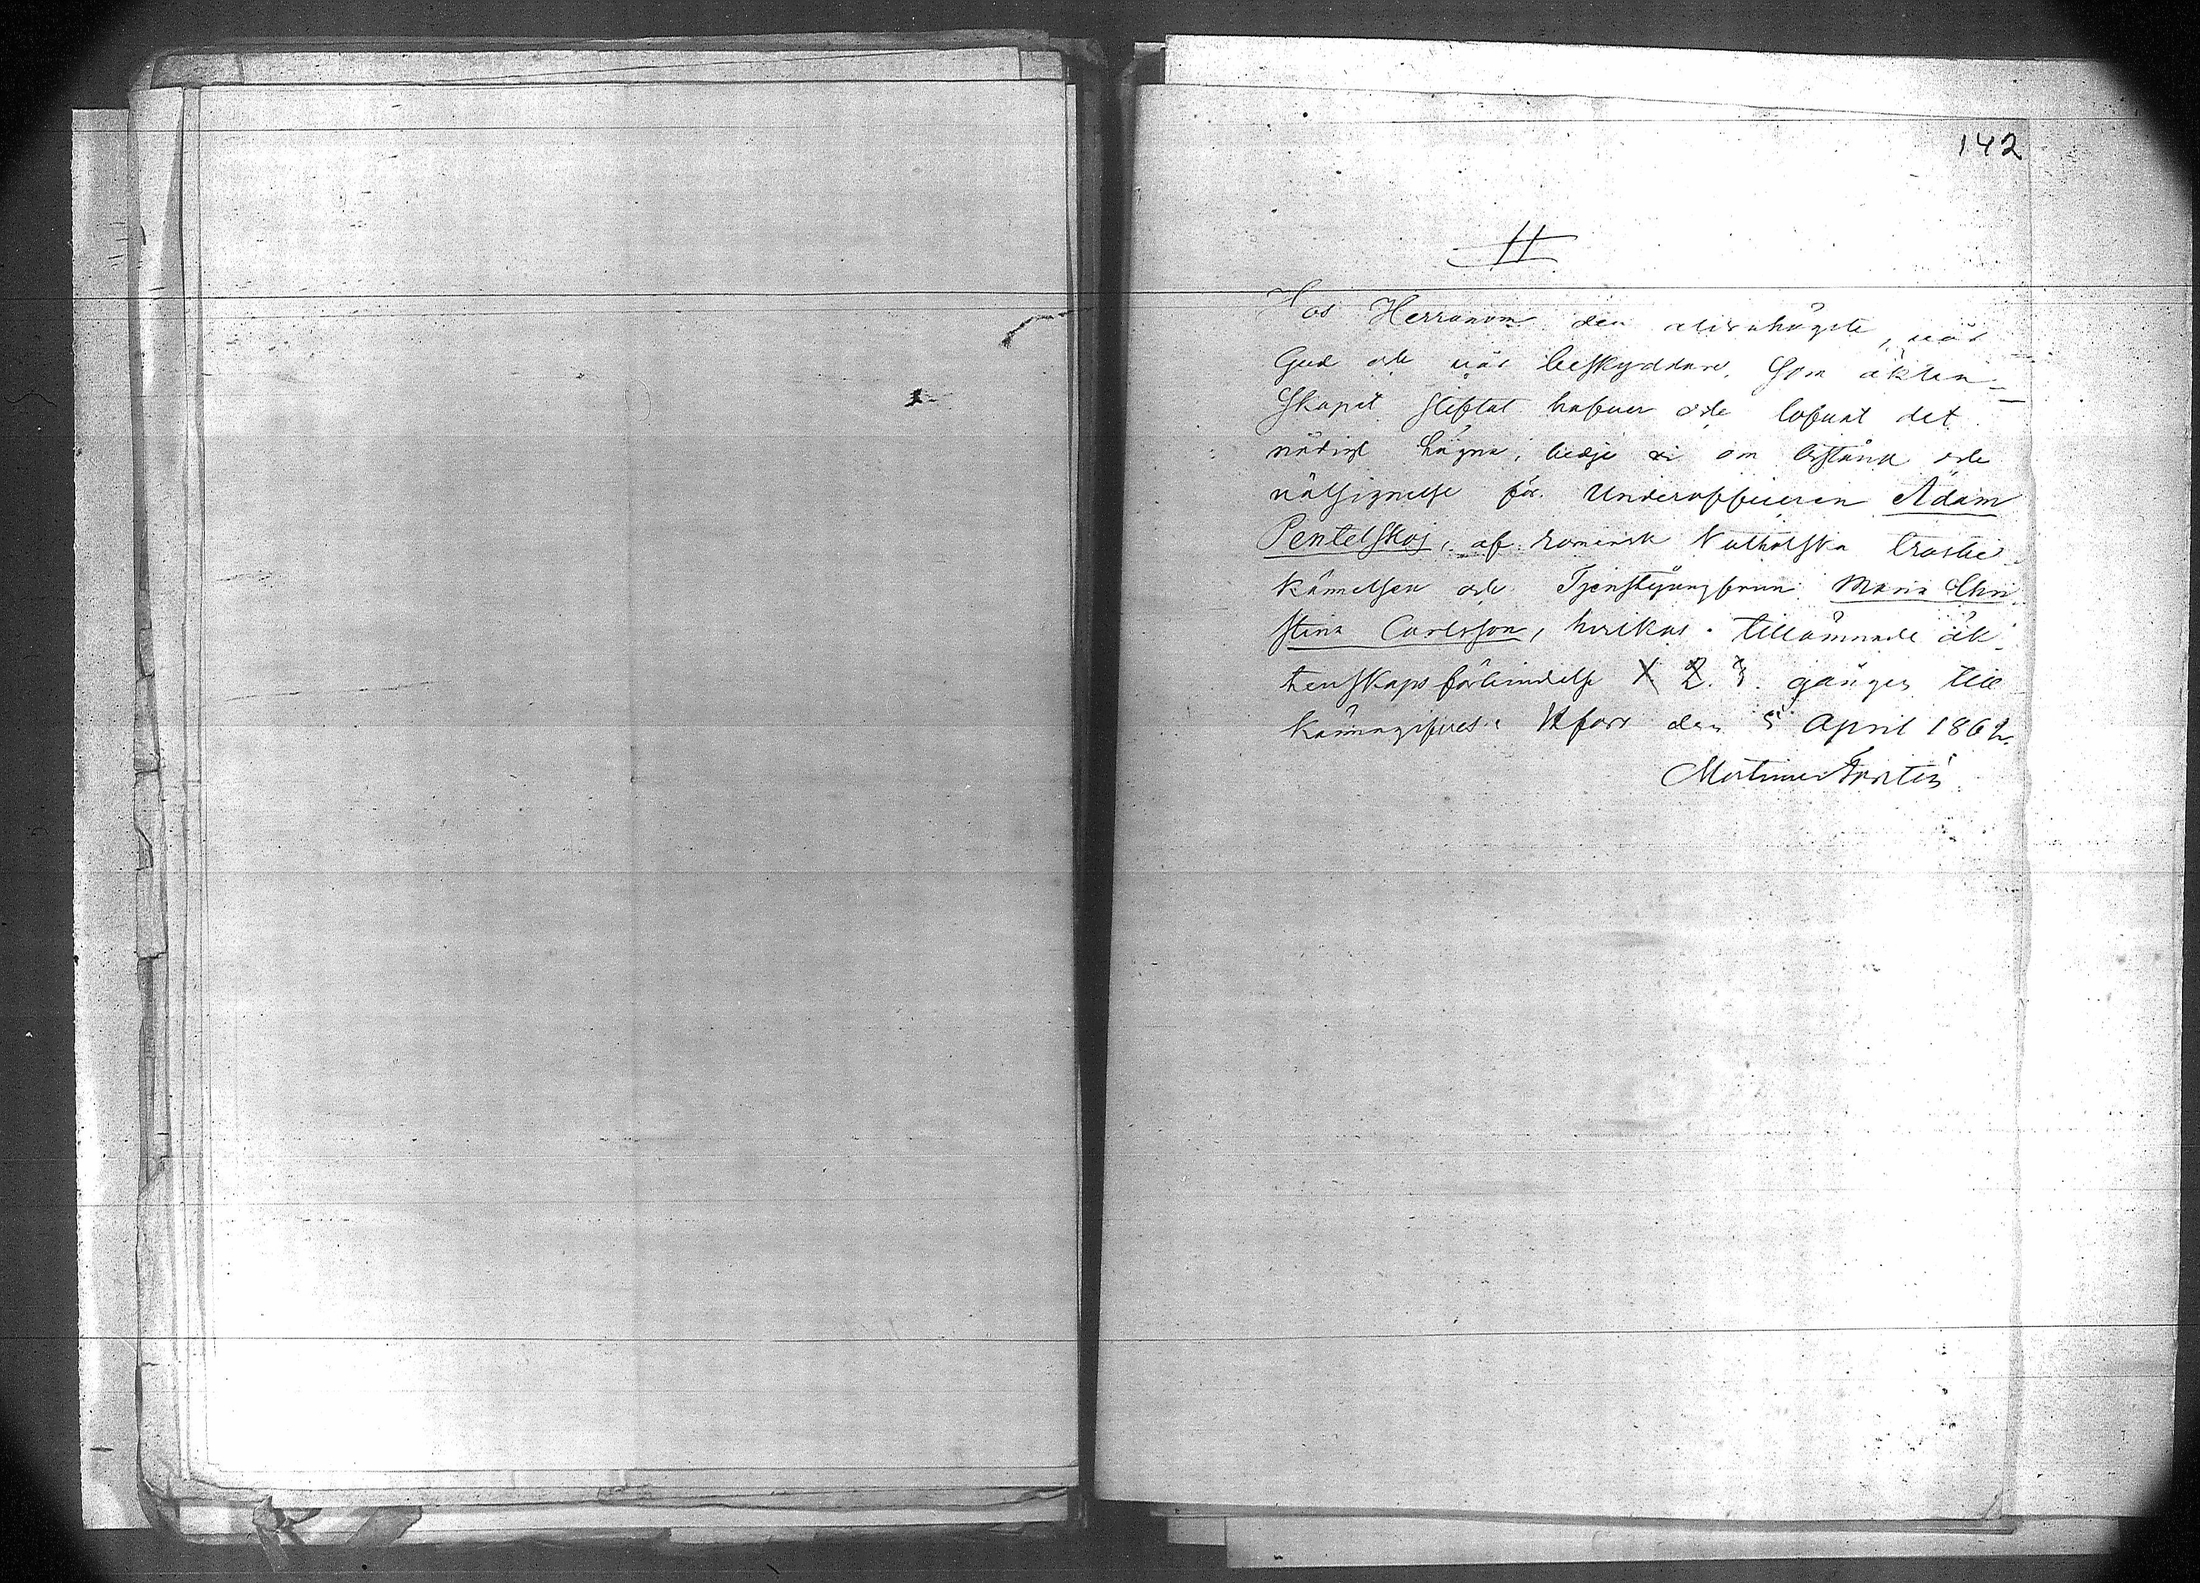 142
H
Hos Herranom den allrahögste, vår
Gud och vår beskyddare, som äkten-
skapet stiftat hafver och lofvat det
nådigt hägna, bedje vi om bistånd och
välsignelse för Underofficeren Adam
Pentelskoj, af romersk katholska trosbe-
kännelsen och Tjenstejungfrun Maria Chri-
stina Carlsson, hvilkas tillämnade äk-
tenskapsförbindelse 1. 2. 3. gången till-
kännagifves. Hfors den 5 April 1862.